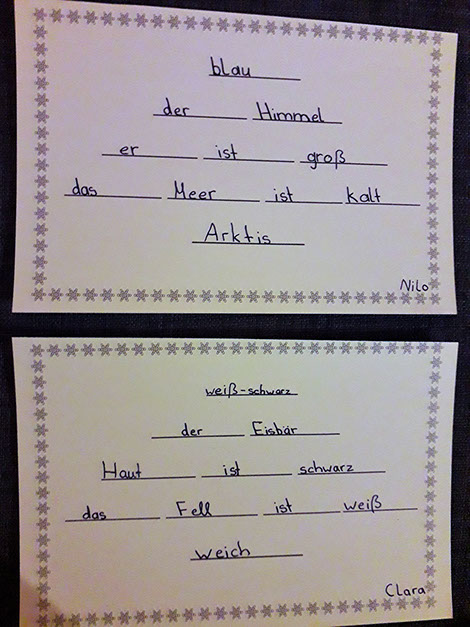 blau
der Himmel
er ist groß
das Meer ist kalt
Arktis
Nilo
weiß-schwarz
der Eisbär
Haut ist schwarz
das Fell ist weiß
weich
Clara